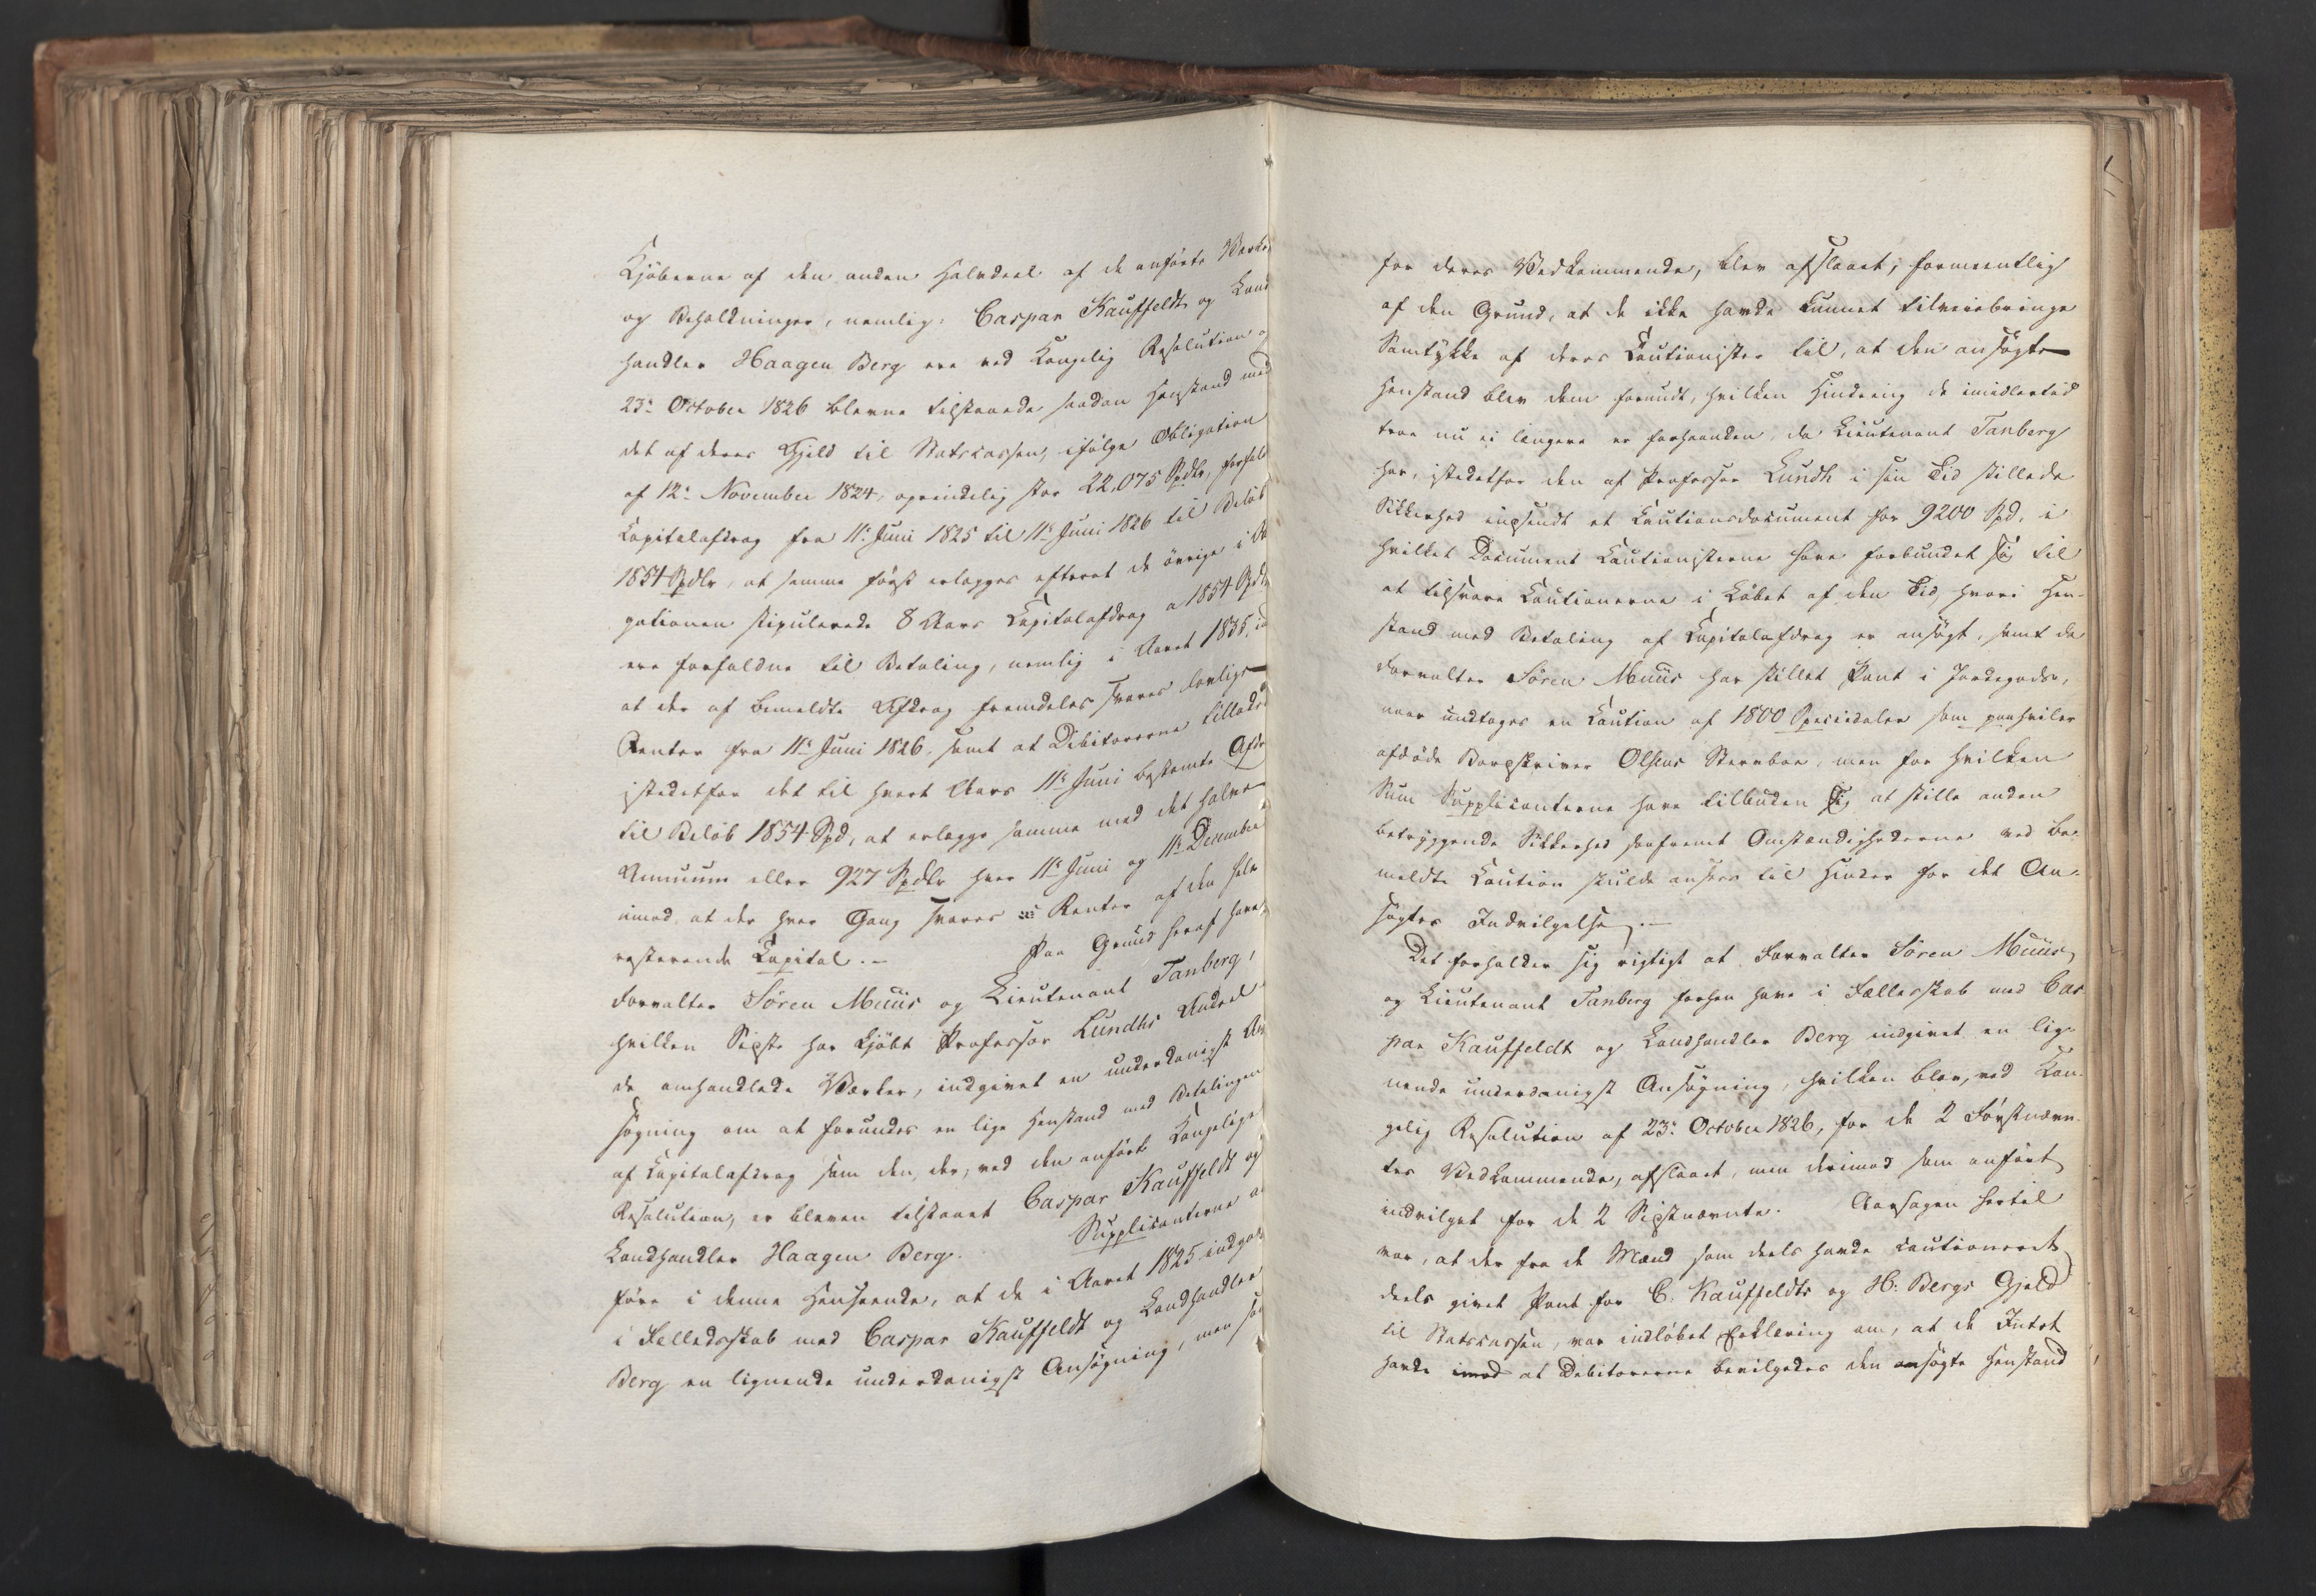 Kjøberne af den anden Halvdeel af de anførte Værker
og Beholdninger, nemlig: Caspar Kauffeldt og Land
handler Haagen Berg ere ved Kongelig Resolution af
23de October 1826 blevne tilstaaede saadan Henstand med
det af deres Gjeld til Statscassen, ifølge Obligation
af 12te November 1824, oprindelig stor 22,075 Spdlr, forfald
Capitalafdrag fra 11te Juni 1825 til 11te Juni 1826 til Beløb
1854 Spdlr, at samme først erlægges efterat de øvrige i Ob
gationen stipulerede 8 Aars Capitalafdrag a 1854 Spdlr
ere forfaldne til Betaling, nemlig i Aaret 1835,
at der af bemeldte Afdrag fremdeles svares lovlige
Renter fra 11te Juni 1826, samt at Debitorerne tillades
istedetfor det til hvert Aars 11te Juni bestemte Afdr
til Beløb 1854 Spd, at erlægge samme med det halve
Annuum eller 927 Spdlr hver 11te Juni og 11te December
imod at der hver Gang svares Renter af den hele
resterende Capital. – Paa Grund heraf have
Forvalter Søren Muus og Lieutenant Tanberg,
hvilken Sidste har kjøbt Professor Lundhs Andeel
de omhandlede Værker, indgivet en underdanigst An
søgning om at forundes en lige Henstand med Betalingen
af Capitalafdrag som den, der, ved den anførte Kongelige
Resolution, er bleven tilstaaet Caspar Kauffeldt og
Landhandler Haagen Berg. Supplicanterne an
føre i denne Henseende, at de i Aaret 1825 indgav
i Felledsskab med Caspar Kauffeldt og Landhandler
Berg en lignende underdanigst Ansøgning, men som
for deres Vedkommende, blev afslaaet, formeentlig
af den Grund, at de ikke havde kunnet tilveiebringe
Samtykke af deres Cautionister til, at den ansøgte
Henstand blev dem forundt, hvilken Hindring de imidlertid
troe nu ei længere er forhaanden, da Lieutenant Tanberg
har, istedetfor den af Professor Lundh i sin Tid stillede
Sikkerhed indsendt et Cautionsdocument for 9200 Spd, i
hvilket Document Cautionisterne have forbundet sig til
at tilsvare Cautionerne i Løbet af den Tid, hvori Hen-
stand med Betaling af Capitalafdrag er ansøgt, samt da
Forvalter Søren Muus har stillet Pant i Jordegods,
naar undtages en Caution af 1800 Speciedaler som paahviler
afdøde Borgskriver Olsens Sterboe, men for hvilken
Sum Supplicanterne have tilbuden sig at stille anden
betryggende Sikkerhed saafremt Omstændighederne ved be-
meldte Caution skulde ansees til Hinder for det An-
søgtes Indvilgelse. –
Det forholder sig rigtigt at Forvalter Søren Muus
og Lieutenant Tanberg forhen have i Fællesskab med Cas-
par Kauffeldt og Landhandler Berg indgivet en lig-
nende underdanigst Ansøgning, hvilken blev, ved Kon-
gelig Resolution af 23de October 1826, for de 2 Førstnævn-
tes Vedkommende, afslaaet, men derimod som anført
indvilget for de 2 Sidstnævnte. Aarsagen hertil
var, at der fra de Mænd som deels havde cautioneret
deels givet Pant for C. Kauffeldts og H. Bergs Gjeld
til Statscassen, var indløbet Erklæring om, at de Intet
havde imod at Debitorerne bevilgedes den ansøgte Henstand